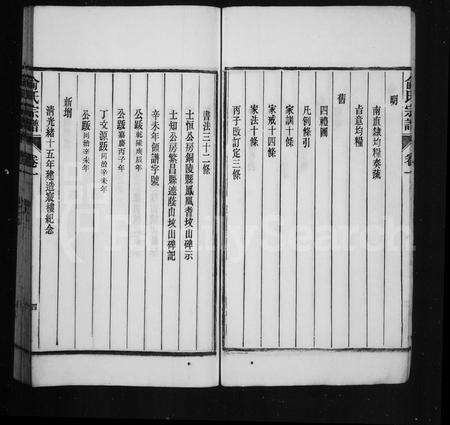 俞氏宗譜
卷一
明
南直隸均糧奏疏
合意均糧
舊
四禮圖
凡例條引
家訓十條
家戒十四條
家法十條
丙子改訂定三條
書法三十二條
士恒公房銅陵縣鳳凰耆坟山碑示
士知公房繁昌縣遮蔭山坟山碑記
辛未年領譜字號
公跋乾隆戊辰年
公跋嘉慶丙子年
丁文源跋同治辛未年
公跋同治辛未年
新增
清光緒十五年建造寢樓紀念
俞氏宗譜
卷一
四
FamilySearch